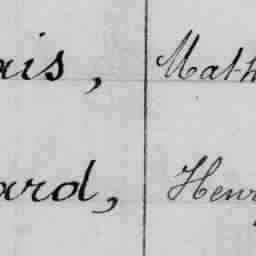 ais, Math
ard, Henry